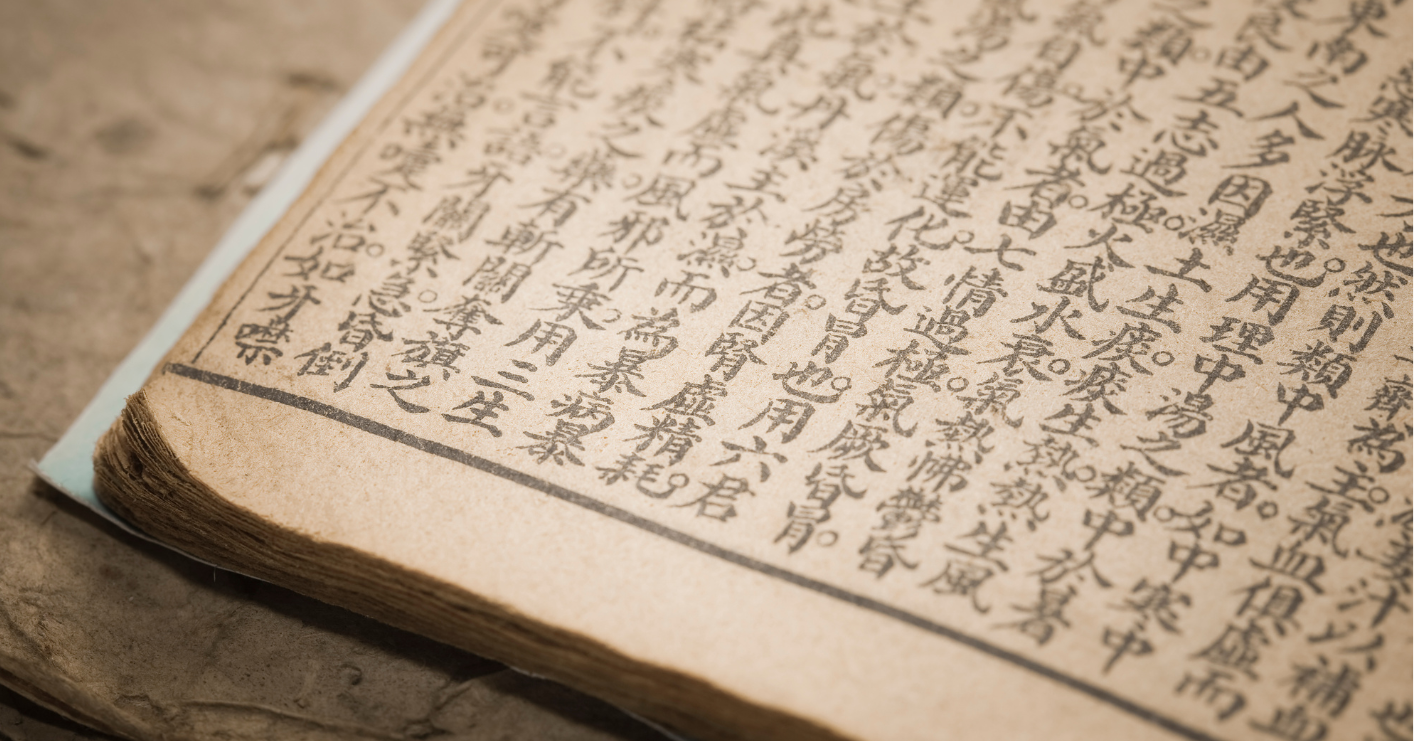 汗以補血
為主。氣血俱虛而
也然則類中風者。如中寒中
脉浮緊。也用理中湯之類。中於暑
東南之人多因濕。土生痰。痰生熱。熱生風
良由五志過極。火盛水衰。氣熱怫鬱昏
之類。中於氣者。由七情過極。氣厥昏冒。
氣自傷。不能運化。故昏冒也。用六君
湯之類。傷於房勞者。因腎虛精耗。
氣。丹溪主於濕。而為暴病暴
真氣虛而風邪所乘。用三生
痰之藥。有斬關奪旗之
不能言語。牙關緊急。昏倒
治無嗄不治。如牙噤